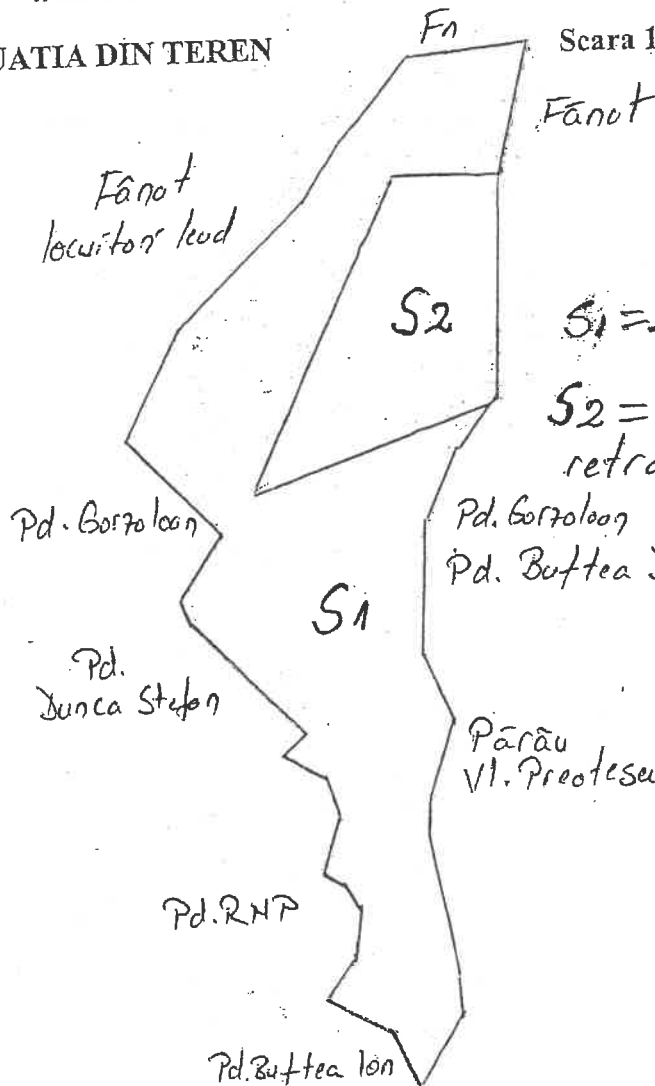 UATIA DIN TEREN
Scara 1
Fn
Fânaț
Fânaț
locuitori Ieud
S2
S1 =
S2 =
retro
Pd. Gorzoloan
Pd. Gorzoloan
Pd. Buftea
S1
Pd.
Dunca Stefan
Pârâu
Vl. Preotesei
Pd. RNP
Pd. Buftea Ion